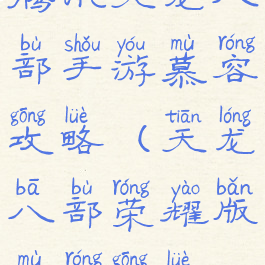 腾讯天龙八
bù shǒu yóu mù róng
部手游慕容
gōng lüè tiān lóng
攻略（天龙
bā bù róng yào bǎn
八部荣耀版
mù róng gōng lüè